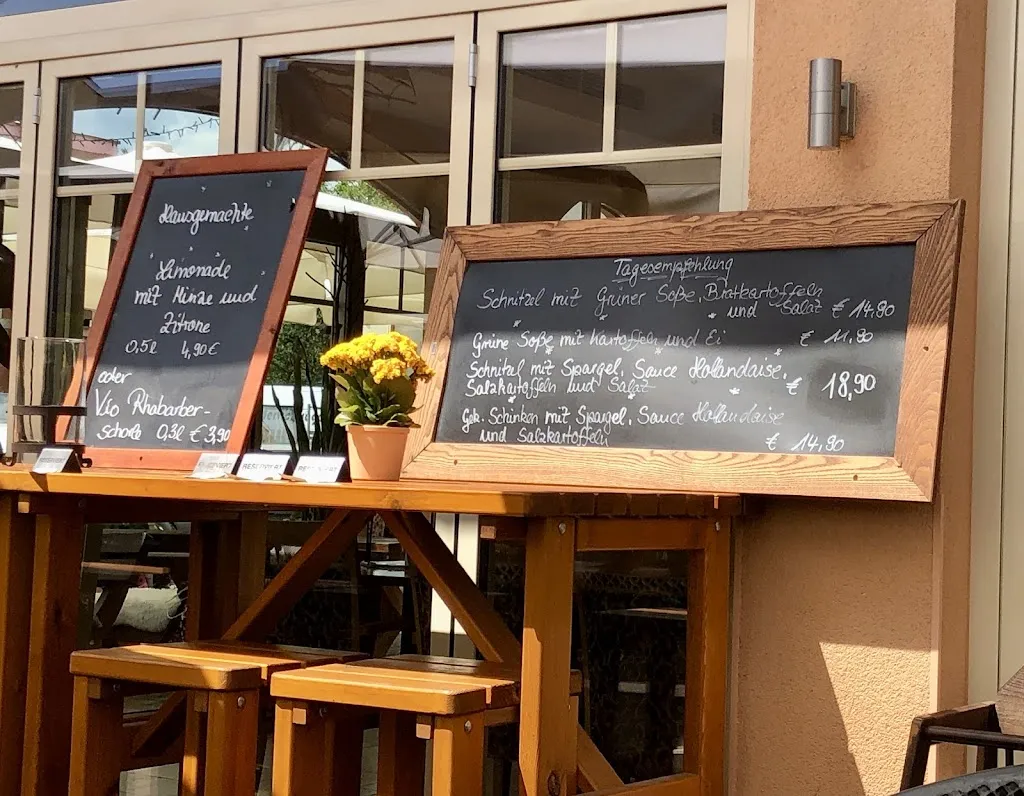 Hausgemachte
"Limonade"
mit Minze und
Zitrone
0,5l 4,90€
oder
Vio Rhabarber-
schorle 0,3l € 3,90
Tagesempfehlung
Schnitzel mit Grüner Soße, Bratkartoffeln
und Salat € 14,90
Grüne Soße mit Kartoffeln und Ei € 11,90
Schnitzel mit Spargel, Sauce Hollandaise,
Salzkartoffeln und Salat € 18,90
Gek. Schinken mit Spargel, Sauce Hollandaise
und Salzkartoffeln € 14,90